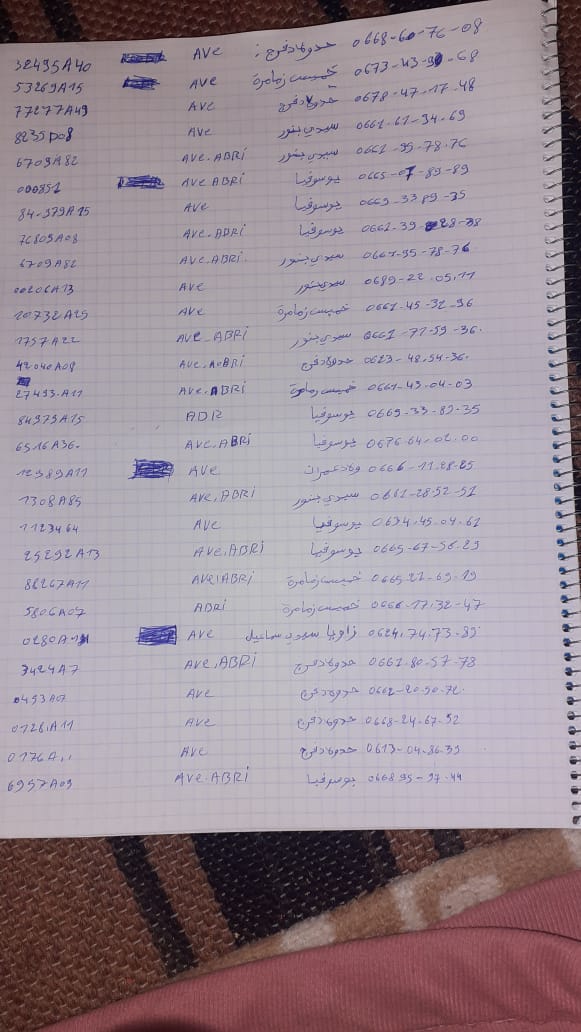 32495A40 AVE حدولادفرج : 0668-60-76-08
53269A15 AVE خميست زمامرة 0673-43-90-68
77277A49 AVE حدولادفرج 0678-47-17-48
8235D08 AVE سيدي بنور 0661-61-34-69
6709A82 AVE.ABRi سيدي بنور 0661-95-78-76
000851 AVE ABRi يوسوفيا 0665-07-89-89
84979A15 AVE يوسوفيا 0669-33 89-35
76809A08 AVE.ABRi يوسوفيا 0661-39-28-38
6709A82 AVE.ABRi. سيدي بنور 0661-95-78-76
00206A13 AVE سيدي بنور 0689-22-05.11
10732A25 AVE خميس زمامرة 0661-45-32-96
1757A22 AVE-ABRi سيدي بنور 0661-77-59-36.
42040A08 AVE.ABRi حدولادفرج 0623-48.54-36.
27493.A11 AVE.ABRi خميس زمامرة 0661-43-04-03
84979A15 ADR يوسوفيا 0669-33-89-35
6516A36. AVE.ABRi يوسوفيا 0676-64-02-00
12389A11 AVE ولاد عمران 0666-11.28-25
1308A85 AVE.ABRi سيدي بنور 0661-28-52-51
1123464 AVE يوسوفيا 0634.45-04-61
25292A13 AVE.ABRi يوسوفيا 0665-67-56-29
88267A11 AVE.ABRi خميس زمامرة 0665-21-69-19
5806A07 ABRi خميس زمامرة 0666-17-32-47
0280A AVE زاويا سيدي سماعيل 0624.74.73-89
3424A7 AVE.ABRi حدولادفرج 0661.80-57-78
0453A07 AVE حدولادفرج 0662-20-90-72
0126.A11 AVE حدولادفرج 0668-24-67-52
0176A11 AVE حدولادفرج 0613-04-86-39
6957A09 AVE.ABRi يوسوفيا 0668 95-97-44